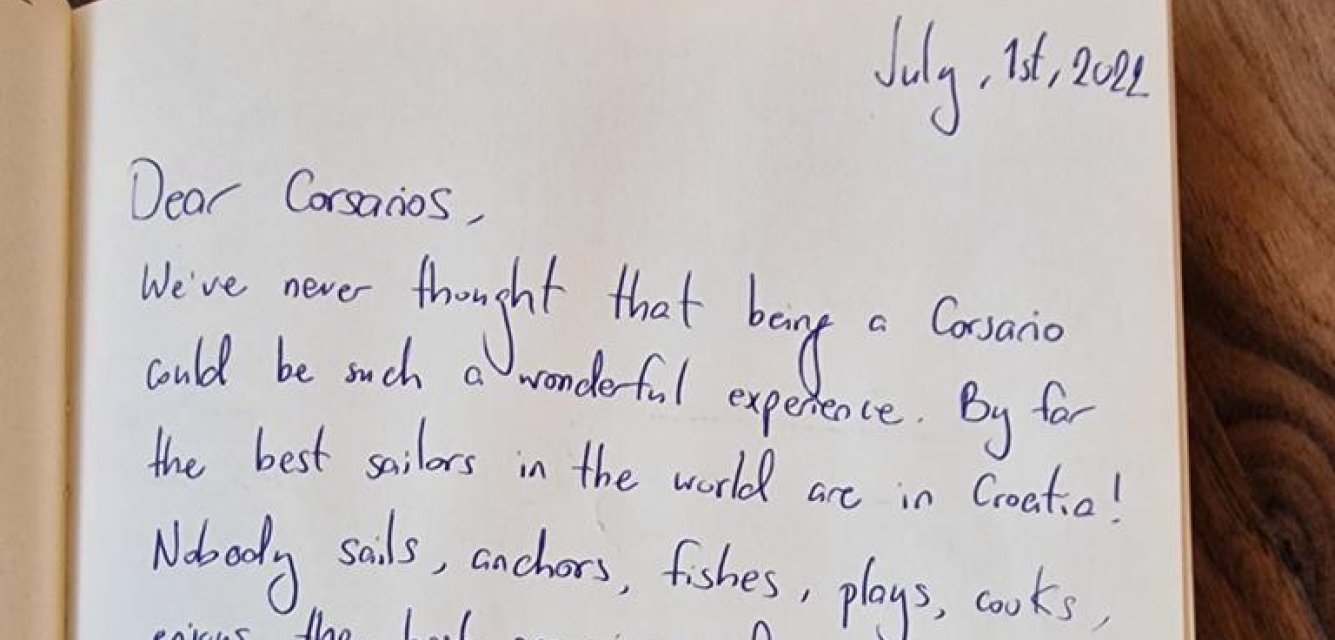 July, 1st, 2022
Dear Corsarios,
We've never thought that being a Corsario
could be such a wonderful experience. By far
the best sailors in the world are in Croatia!
Nobody sails, anchors, fishes, plays, cooks,
enjoys the